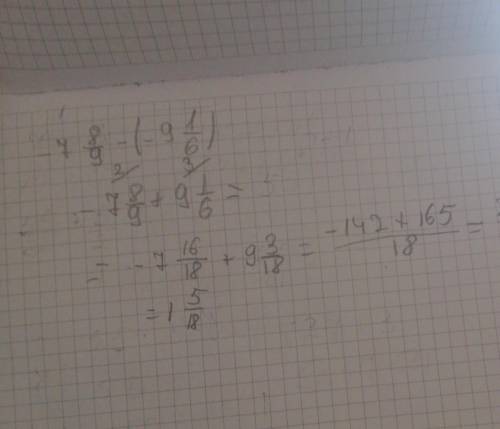 -7 8/9 - (-9 1/6)
-7 8/9 + 9 1/6 =
= -7 16/18 + 9 3/18 = (-142 + 165)/18 =
= 1 5/18